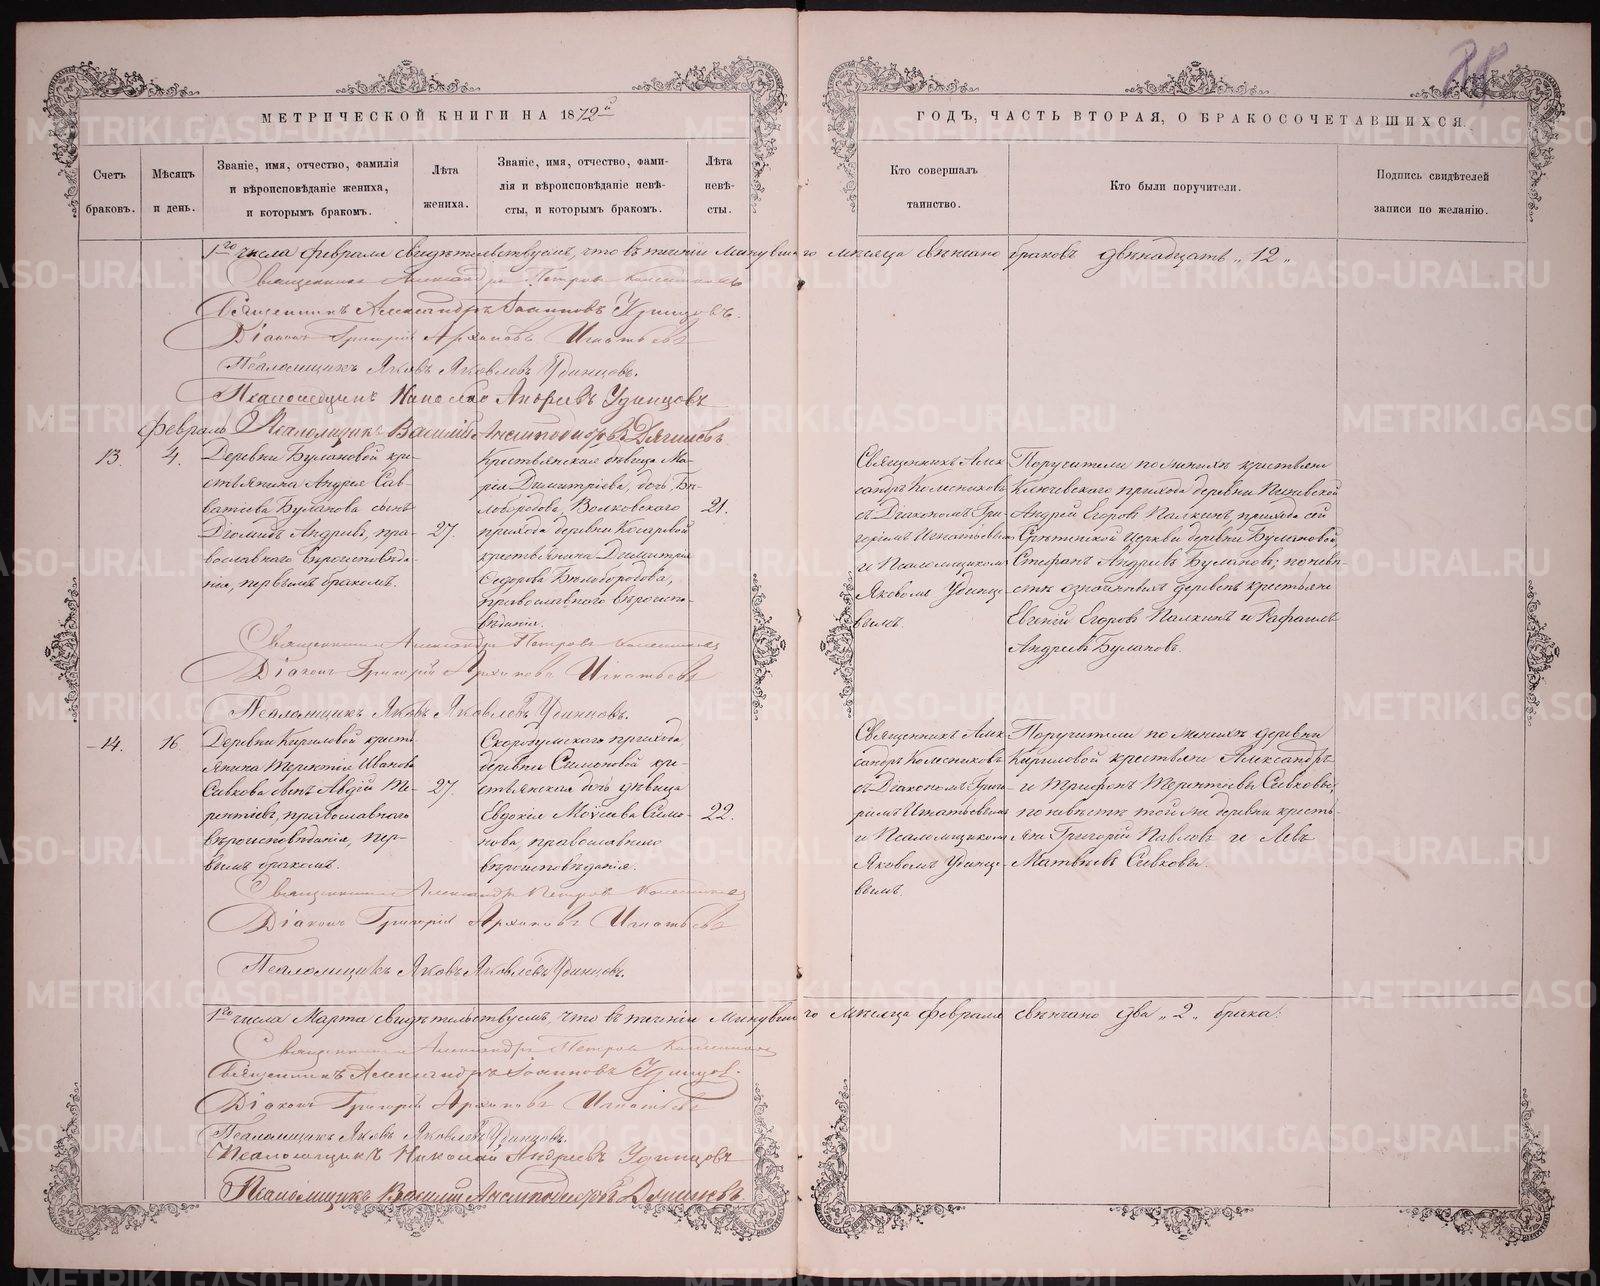 МЕТРИЧЕСКОЙ КНИГИ НА 1872й
ГОДЪ, ЧАСТЬ ВТОРАЯ, О БРАКОСОЧЕТАВШИХСЯ.
Счетъ
браковъ.
Мѣсяцъ
и день.
Званіе, имя, отчество, фамилія
и вѣроисповѣданіе жениха,
и которымъ бракомъ.
Лѣта
жениха.
Званіе, имя, отчество, фами-
лія и вѣроисповѣданіе невѣ-
сты, и которымъ бракомъ.
Лѣта
невѣ-
сты.
Кто совершалъ
таинство.
Кто были поручители.
Подпись свидѣтелей
записи по желанію.
1го числа февраля свидѣтельствуемъ, что въ теченіи минувшаго мѣсяца свѣнчано браковъ двѣнадцать „12„
Священникъ Александръ Петровъ Колесниковъ
Священникъ Александръ Іоанновъ
Діаконъ Григорій Архиповъ Игнатьевъ
Псаломщикъ Яковъ Яковлевъ Удинцовъ.
Псаломщикъ Николай Андреевъ Удинцовъ
Псаломщикъ Василій
февраль
13.
4.
Деревни Булановой кре-
стьянина Андрея Сав-
ватіева Буланова сынъ
Діомидъ Андреевъ, пра-
вославнаго вѣроисповѣда-
нія, первымъ бракомъ.
27.
Крестьянская дѣвица Ма-
рія Димитріева, дочь Бѣ-
лобородова, Волковскаго
прихода деревни
крестьянина Димитрія
Сидорова Бѣлобородова,
православнаго вѣроиспо-
вѣданія.
21.
Священникъ Алек-
сандръ Колесниковъ
съ Діакономъ Гри-
горіемъ Игнатьевымъ
и Псаломщикомъ
Яковомъ Удинцо-
вымъ.
Поручители по женихѣ крестьяне
Ключевскаго прихода деревни
Андрей Егоровъ Палкинъ, прихода сей
Срѣтенской церкви деревни Булановой
Стефанъ Андреевъ Булановъ; по невѣ-
стѣ означенныхъ деревень крестьяне
Евгеній Егоровъ Палкинъ и Рафаилъ
Андреевъ Булановъ.
Священникъ Александръ Петровъ Колесниковъ
Діаконъ Григорій Архиповъ Игнатьевъ
Псаломщикъ Яковъ Яковлевъ Удинцовъ.
14.
16.
Деревни Кириловой кресть-
янина Терентія Иванова
Сивкова сынъ Авдій Те-
рентіевъ, православнаго
вѣроисповѣданія, пер-
вымъ бракомъ.
27.
Скоробумскаго прихода
деревни Симоновой кре-
стьянская дочь дѣвица
Евдокія Моѵсеева Симо-
нова, православнаго
вѣроисповѣданія.
22.
Священникъ Алек-
сандръ Колесниковъ
съ Діакономъ Григо-
ріемъ Игнатьевымъ
и Псаломщикомъ
Яковомъ Удинцо-
вымъ.
Поручители по женихѣ деревни
Кириловой крестьяне Александръ
и Трифонъ Терентьевы Сивковы;
по невѣстѣ той же деревни кресть-
яне Григорій Павловъ и Левъ
Матвѣевъ Сивковы.
Священникъ Александръ Петровъ Колесниковъ
Діаконъ Григорій Архиповъ Игнатьевъ
Псаломщикъ Яковъ Яковлевъ Удинцовъ.
1го числа Марта свидѣтельствуемъ, что въ теченіи минувшаго мѣсяца февраля свѣнчано два „2„ брака:
Священникъ Александръ Петровъ Колесниковъ
Священникъ Александръ Іоанновъ
Діаконъ Григорій Архиповъ Игнатьевъ
Псаломщикъ Яковъ Яковлевъ Удинцовъ.
Псаломщикъ Николай Андреевъ Удинцовъ
Псаломщикъ Василій
METRIKI.GASO-URAL.RU